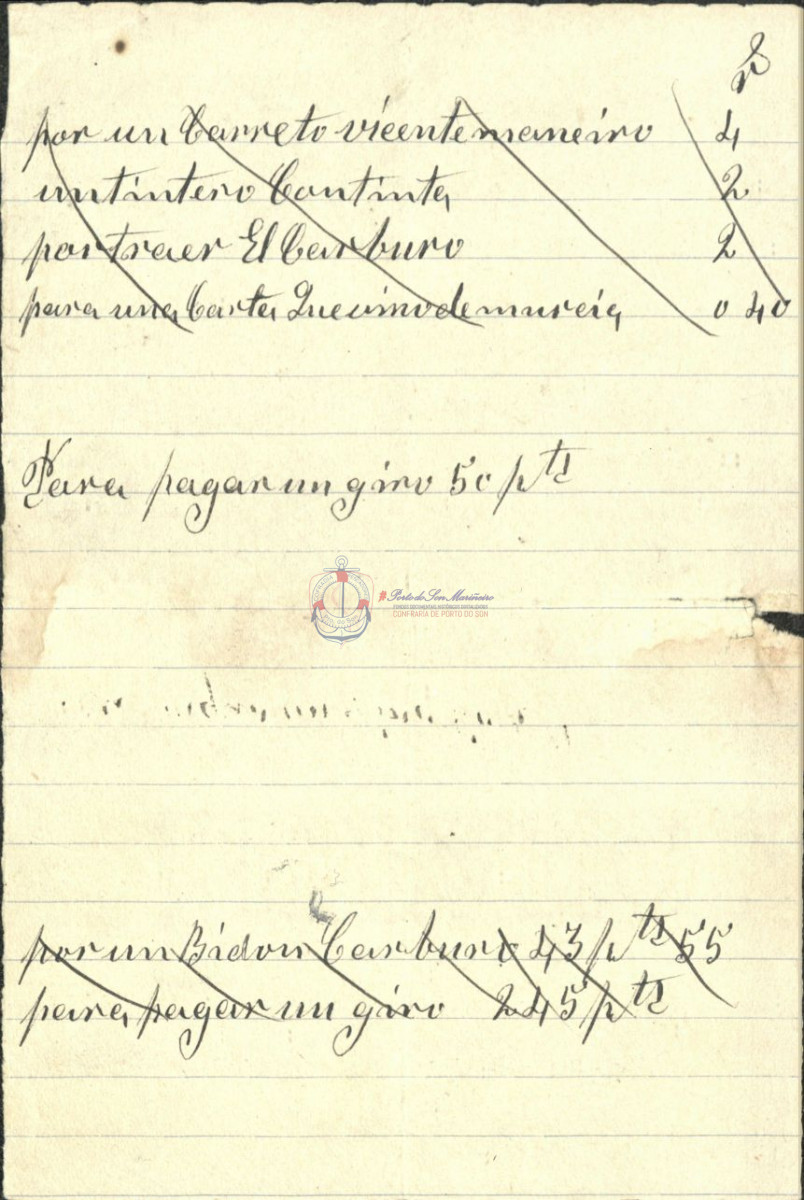 por un Carreto vicente maneiro 4
un tintero Con tinta 2
por traer El Carburo 2
para una Carta Que vino de murcia 0 40
Para pagar un giro 50 pts
#Porto do Son Mariñeiro
CONFRARÍA DE PORTO DO SON
por un Bidon Carburo 43 pts 55
para pagar un giro 245 pts